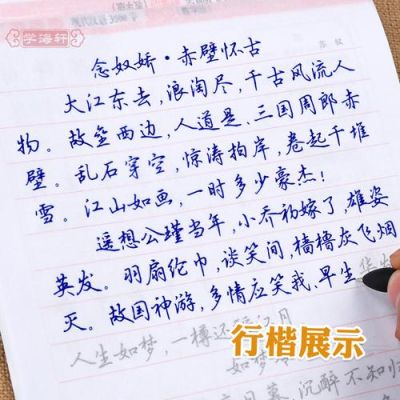 学海轩
念奴娇·赤壁怀古
大江东去，浪淘尽，千古风流人
物。故垒西边，人道是，三国周郎赤
壁。乱石穿空，惊涛拍岸，卷起千堆
雪。江山如画，一时多少豪杰！
遥想公瑾当年，小乔初嫁了，雄姿
英发。羽扇纶巾，谈笑间，樯橹灰飞烟
灭。故国神游，多情应笑我，早生华
人生如梦，一樽还酹江月
如梦令
日暮，沉醉不知归
行楷展示